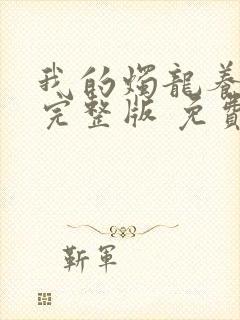 我的燭龍養
完整版 免費
靳軍